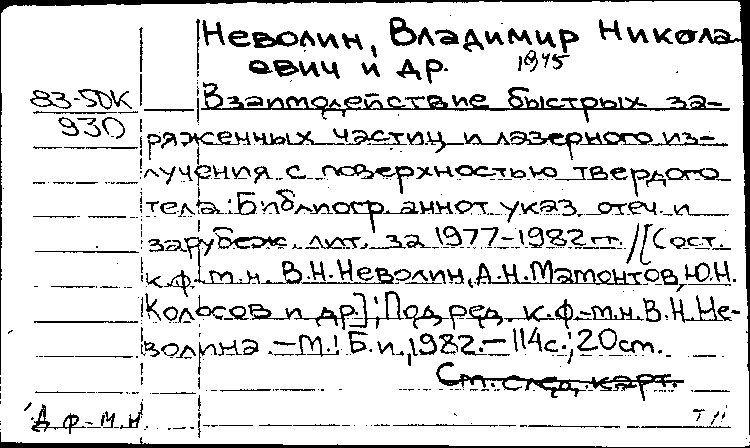 Неволин, Владимир Никола-
евич и др. 1945
83-5DK
930
Взаимодействие быстрых за-
ряженных частиц и лазерного из-
лучения с поверхностью твердого
тела: Библиогр. аннот указ. отеч. и
зарубеж. лит. за 1977-1982 гг. /[Сост.
к.ф.-м.н. В.Н.Неволин, А.Н.Мамонтов, Ю.Н.
Колосов и др.]; Под ред. к.ф.-м.н. В.Н.Не-
волина. — М.: Б.и., 1982. — 114с.; 20см.
См. след. карт.
Д ф-м.н.